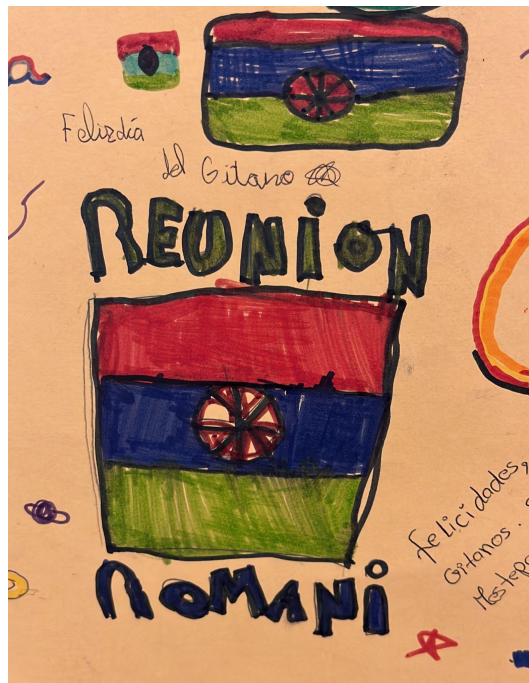 Feliz día
del Gitano
REUNION
ROMANI
Felicidades,
Gitanos.